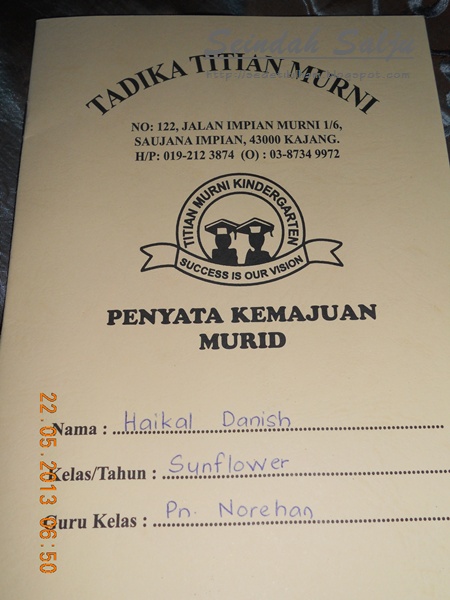 Seindah Salju
TADIKA TITIAN MURNI
NO: 122, JALAN IMPIAN MURNI 1/6,
SAUJANA IMPIAN, 43000 KAJANG.
H/P: 019-212 3874 (O) : 03-8734 9972
TITIAN MURNI KINDERGARTEN
SUCCESS IS OUR VISION
PENYATA KEMAJUAN
MURID
Nama : Haikal Danish
Kelas/Tahun : Sunflower
Guru Kelas : Pn. Norehan
22.05.2013 06:50